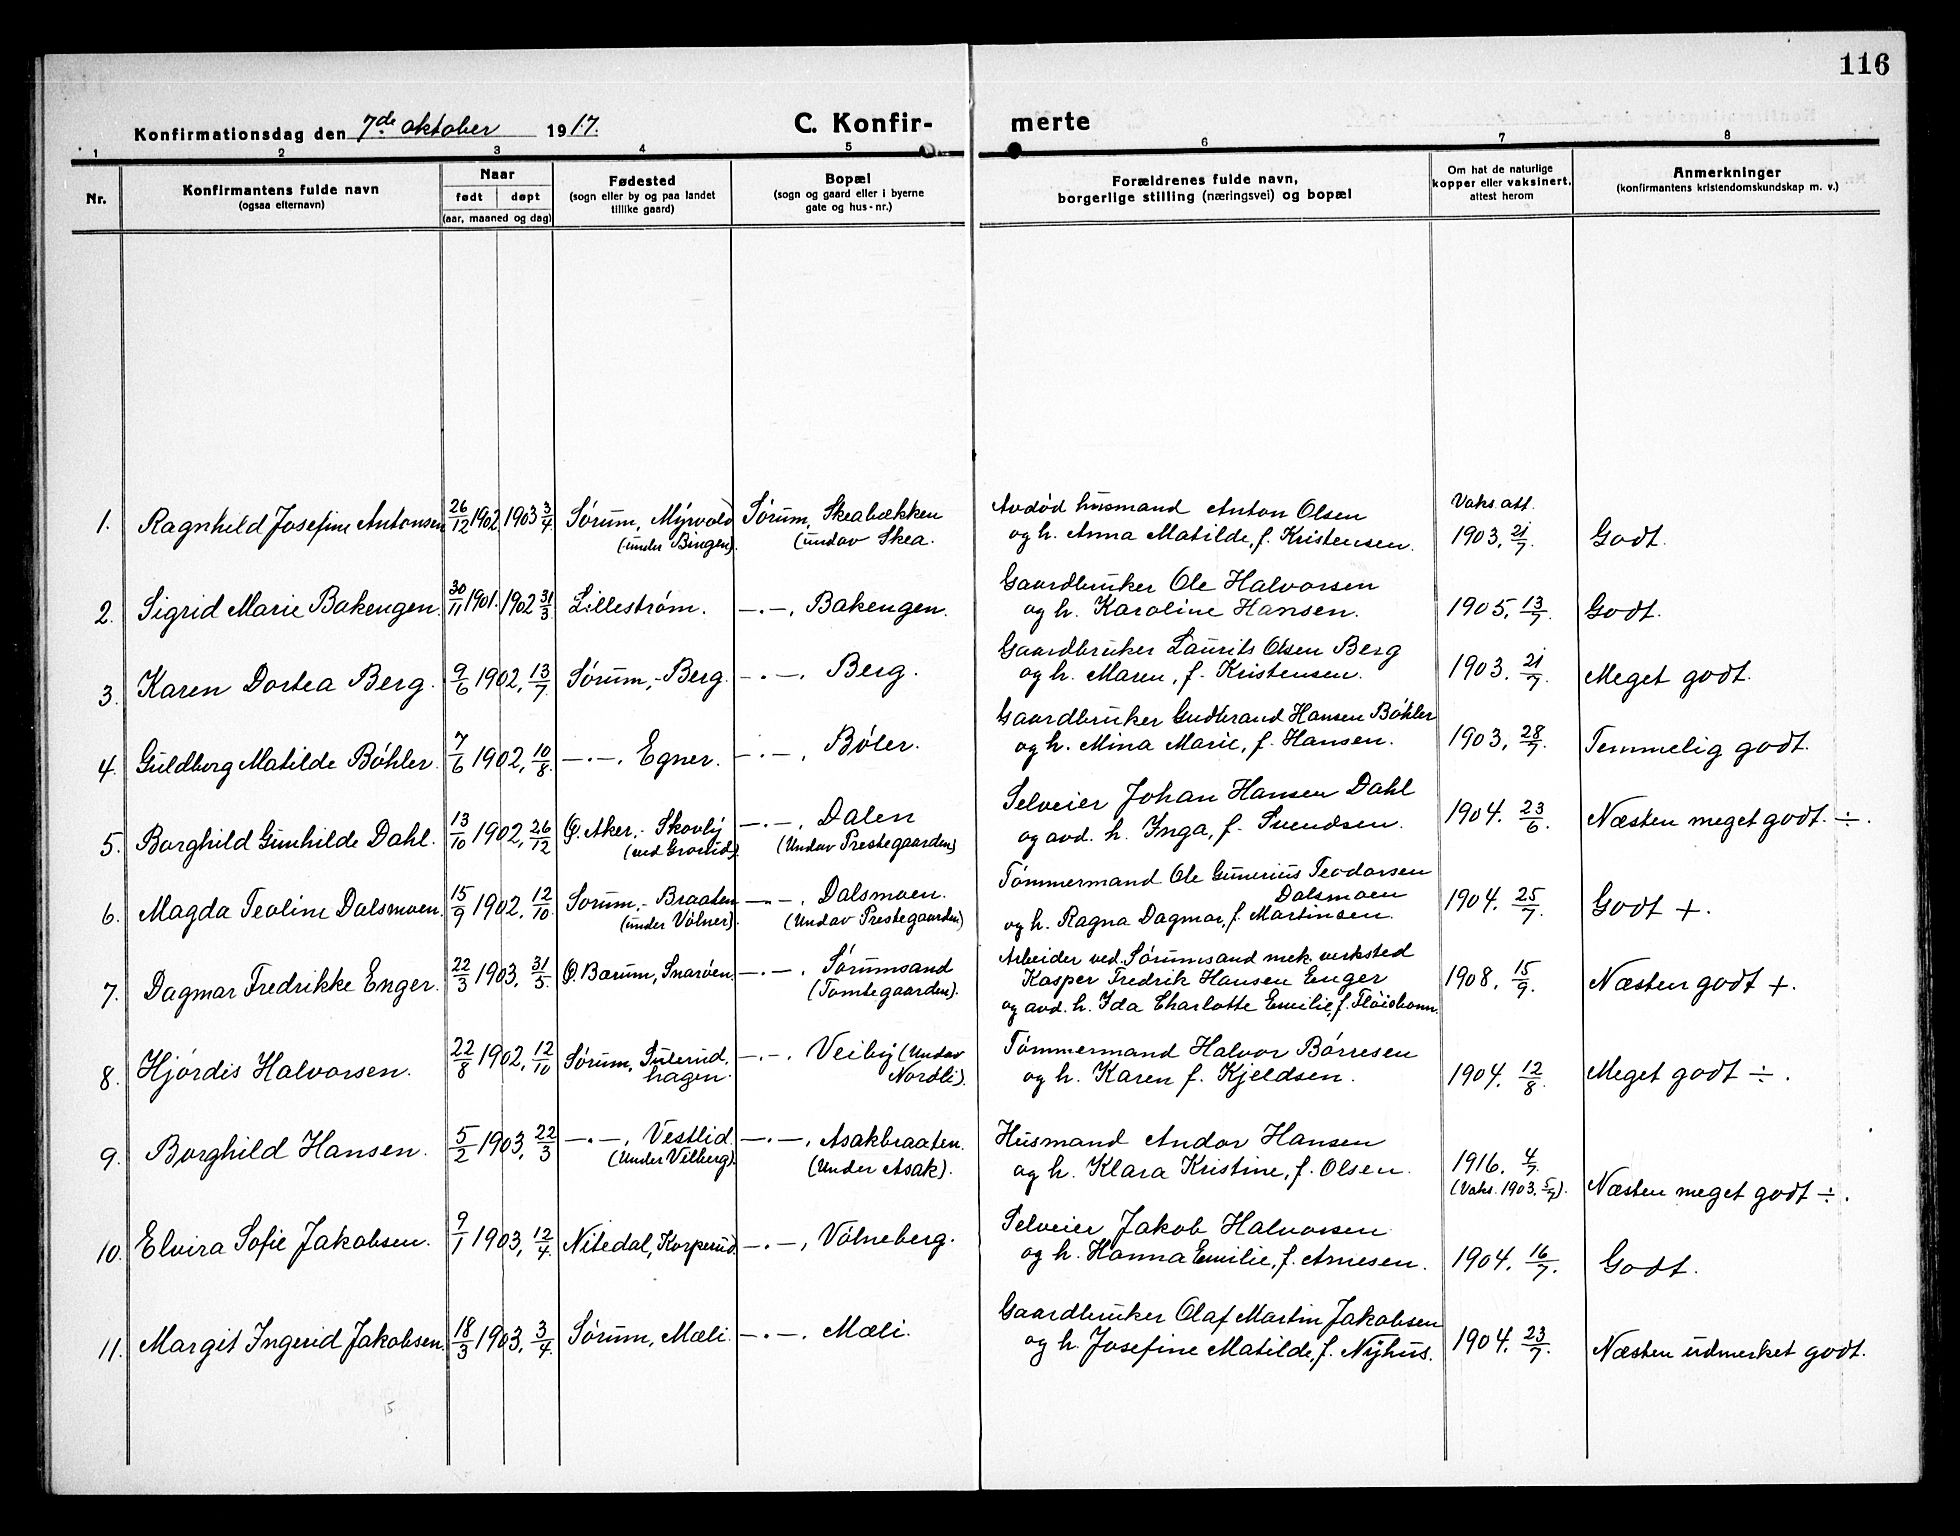 116
Konfirmationsdag den 7de oktober 1917.
C. Konfirmerte
1 2 3 4 5 6 7 8
Nr.
Konfirmantens fulde navn
(ogsaa efternavn)
Naar
født døpt
(aar, maaned og dag)
Fødested
(sogn eller by og paa landet
tillike gaard)
Bopæl
(sogn og gaard eller i byerne
gate og hus-nr.)
Forældrenes fulde navn,
borgerlige stilling (næringsvei) og bopæl
Om hat de naturlige
kopper eller vaksinert,
attest herom
Anmerkninger
(konfirmantens kristendomskundskap m. v.)
1. Ragnhild Josefine Antonsen 26/12 1902 1903 3/4 Sørum, Myrvold Sørum, Skeabækken Avdød husmand Anton Olsen Vaks. att.
(under Bingen). (undav Skea. og h. Anna Matilde, f. Kristensen. 1903. 21/7. Godt.
2. Sigrid Marie Bakengen. 30/11 1901. 1902 31/3 Lillestrøm. —·—, Bakengen. Gaardbruker Ole Halvorsen
og h. Karoline Hansen. 1905. 13/7. Godt.
3. Karen Dortea Berg. 9/6 1902, 13/7 Sørum, Berg. —·—, Berg. Gaardbruker Laurits Olsen Berg
og h. Maren, f. Kristensen. 1903. 21/7. Meget godt.
4. Guldborg Matilde Bøhler. 7/6 1902, 10/8. —·—, Egner. —·—, Bøler. Gaardbruker Gudbrand Hansen Bøhler
og h. Mina Marie, f. Hansen. 1903. 28/7. Temmelig godt.
5. Borghild Gunhilde Dahl. 13/10 1902, 26/12 Ø. Aker, Skovly —·—, Dalen Selveier Johan Hansen Dahl
(ved Grorud). (Undav Prestegaarden) og avd. h. Inga, f. Svendsen. 1904. 23/6. Næsten meget godt ÷.
6. Magda Teoline Dalsmoen. 15/9 1902, 12/10. Sørum, Braaten —·—, Dalsmoen. Tømmermand Ole Gunerius Teodorsen
Dalsmoen
(under Vølner). (Undav Prestegaarden) og h. Ragna Dagmar, f. Martinsen. 1904. 25/7. Godt +.
7. Dagmar Fredrikke Enger. 22/3 1903, 31/5. Ø. Bærum, Snarøen. —·—, Sørumsand Arbeider ved Sørumsand mek. verksted
(Tomtegaarden). Kasper Fredrik Hansen Enger 1908. 15/9. Næsten godt +.
og avd. h. Ida Charlotte Emilie, f. Fløisbonn.
8. Hjørdis Halvorsen. 22/8 1902, 12/10 Sørum, Sulerud- —·—, Veiby (Undav Tømmermand Halvor Børresen
hagen. Nordli). og h. Karen f. Kjeldsen. 1904. 12/8. Meget godt ÷.
9. Borghild Hansen. 5/2 1903, 22/3 —·—, Vestlid. —·—, Asakbraaten. Husmand Andor Hansen
(Under Vilberg). (Under Asak). og h. Klara Kristine, f. Olsen. 1916. 4/7.
(Vaks. 1903. 5/7). Næsten meget godt ÷.
10. Elvira Sofie Jakobsen. 9/1 1903, 12/4. Nitedal, Korperud —·—, Vølneberg. Selveier Jakob Halvorsen
og h. Hanna Emilie, f. Arnesen. 1904. 16/7. Godt.
11. Margit Ingerid Jakobsen. 18/3 1903, 3/4 Sørum, Mæli. —·—, Mæli. Gaardbruker Olaf Martin Jakobsen
og h. Josefine Matilde, f. Nyhus. 1904. 23/7. Næsten udmerket godt.